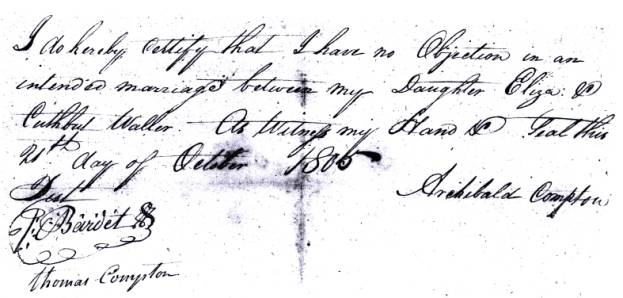 I do hereby Certify that I have no Objection in an
intended marriage between my Daughter Eliza &
Cuthbut Waller - As Witness my Hand & Seal this
21th day of October 1805
Test
Archibald Compton
P. Bardet
Thomas Compton